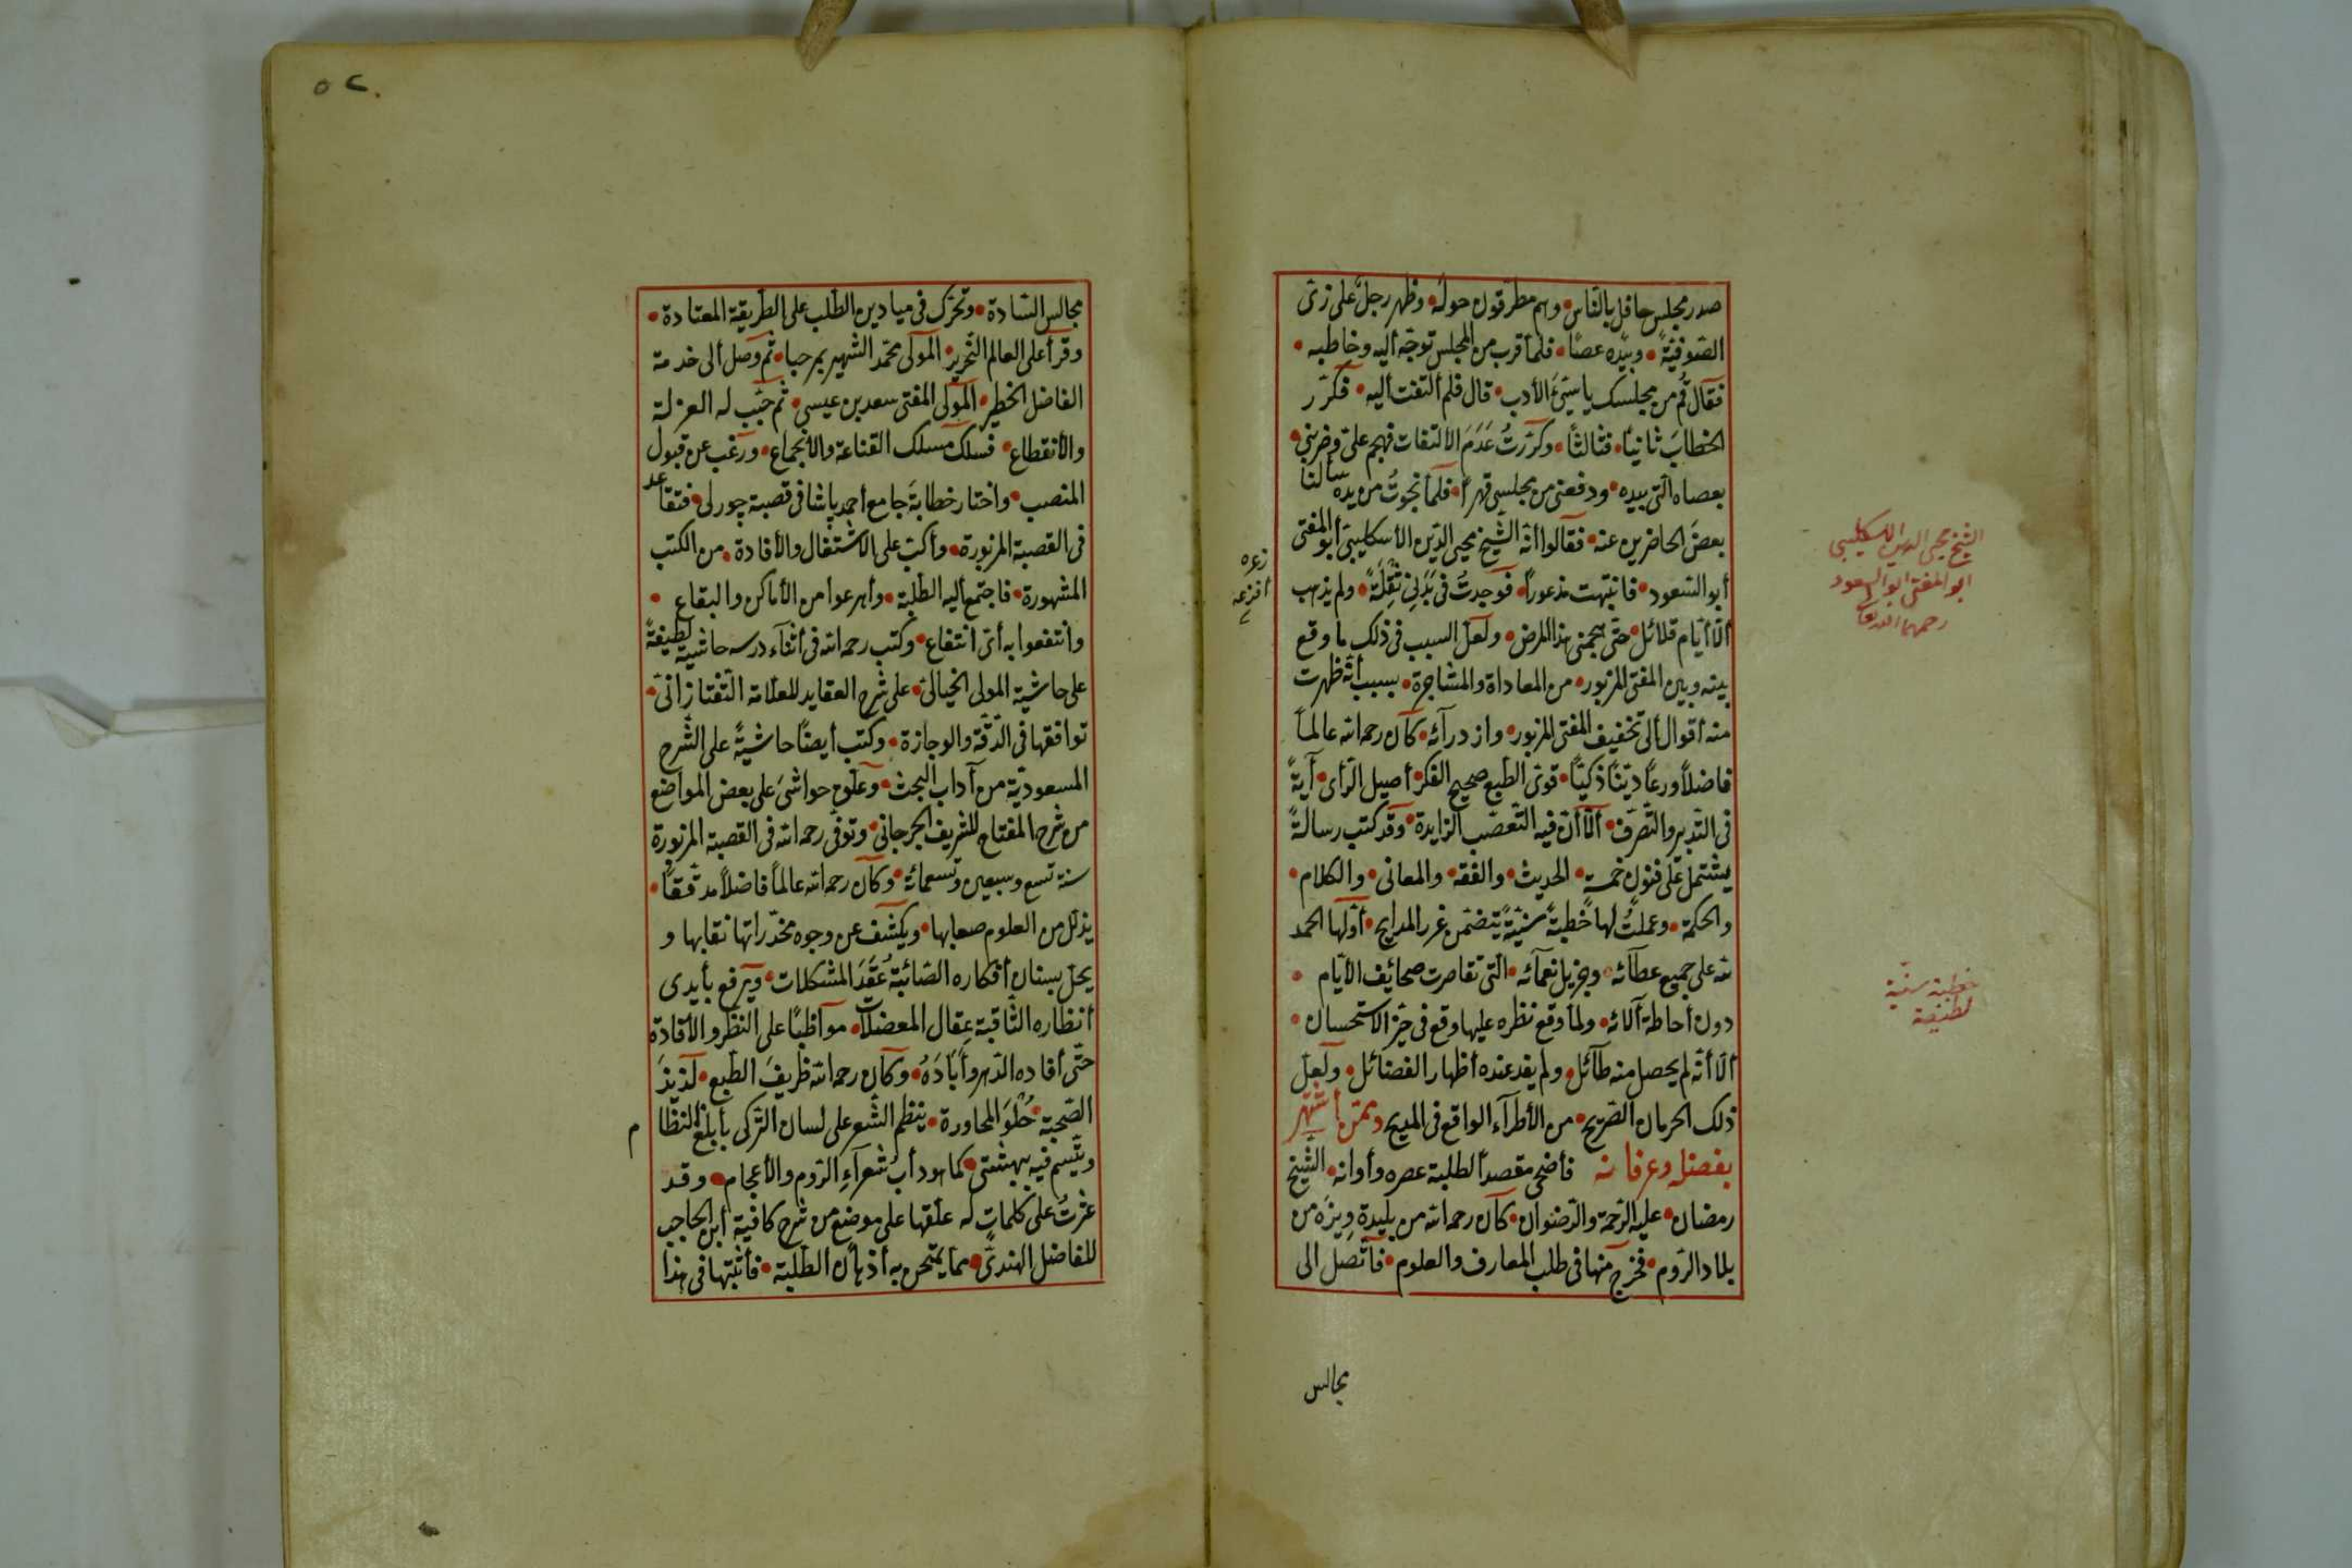 صدر مجلس حافل بالناس • وهم مطرقون حوله • وظهر رجل على زىّ
الصوفية • وبيده عصًا • فلما قرب من المجلس توجّه أليه وخاطبه •
فقال قُم من مجلسك ياسيّئ الأدب • قال فلم ألتفت أليه • فكرّر
الخطابَ ثانيًا • فثالثًا • وكرّرتُ عَدَمَ الألتفات فهجم علىّ وضربنى •
بعصاه الّتى بيده • ودفعنى من مجلسى قهرًا • فلمّا نجوتُ من يده سألنا
بعضَ الحاضرين عنه • فقالوا أنّه الشّيخ محيى الدّين الأسكليبىّ أبو المفتى
أبو السّعود • فانتبهت مذعورًا • فوجدتُ فى بَدَنى ثِقْلَةً • ولم يذهب
ألّا أيّام قلائل • حتّى هجمنى هذا المرض • ولعلّ السبب فى ذلك ما وقع
بينه وبين المفتى المزبور • من المعاداة والمشاجرة • بسبب أنّه ظهرت
منه أقوال ألى تخفيف المفتى المزبور • وازدرآئه • كان رحمه الله عالمًا
فاضلًا ورعًا ديّنًا ذكيًّا • قوىّ الطّبع صحيح الفكر • أصيل الرّأى • آيةً
فى التّدبير والتّصرّف • ألّا أنّ فيه التّعصّب الزايدة • وقد كتب رسالةً
يشتمل على فنون خمسة • الحديث • والفقه • والمعانى • والكلام •
والحكمة • وعملتُ لها خطبةً سنيّةً يتضمّن غرر المدايح • أوّلها الحمد
لله على جميع عطآئه • وجزيل نعمآئه • الّتى تقاصرت صحائف الأيّام •
دون أحاطة آلائه • ولمّا وقع نظره عليها وقع فى حيّز الاستحسان •
ألّا أنّه لم يحصل منه طآئل • ولم يفد عنده أظهار الفضائل • ولعلّ
ذلك الحرمان الصّريح • من الأطرآء الواقع فى المديح وممّن أشتهر
بفضله وعرفانه فأضحى مقصدًا لطلبة عصره وأوانه • الشّيخ
رمضان • عليه الرّحمة والرّضوان • كان رحمه الله من بليدة ويزَه من
بلاد الرّوم • فخرج منها فى طلب المعارف والعلوم • فأتّصل الى
مجالس
زعره
أفزعه
الشيخ محيى الدين الاسكليبى
ابو المفتى ابو السعود
رحمهما الله تعالى
خطبة سنية
لطيفة
٥٢
مجالس السّادة • وتحرّك فى ميادين الطّلب على الطّريقة المعتادة •
وقرأ على العالم النّحرير • المولى محمّد الشّهير بمرحبا • ثمّ وصل ألى خدمة
الفاضل الخطير • المولى المفتى سعد بن عيسى • ثمّ حبّب له العزلة
والأنقطاع • فسلك مسلك القناعة والأنجماع • ورغب عن قبول
المنصب • واختار خطابةَ جامع أحمد پاشا فى قصبة چورلى • فتقاعد
فى القصبة المزبورة • وأكبّ على الاشتغال والأفادة • من الكتب
المشهورة • فاجتمع أليه الطّلبة • وأهرعوا من الأماكن والبقاع •
وأنتفعوا به أىّ أنتفاع • وكتب رحمه الله فى أثنآء درسه حاشيةً لطيفةً
على حاشية المولى الخيالىّ • على شرح العقايد للعلّامة التّفتازانىّ •
توافقها فى الدّقّة والوجازة • وكتب أيضًا حاشيةً على الشّرح
المسعوديّة من آداب البحث • وعلّق حواشىَ على بعض المواضع
من شرح المفتاح للشّريف الجرجانى • وتوفّى رحمه الله فى القصبة المزبورة
سنة تسع وسبعين وتسعمائة • وكان رحمه الله عالمًا فاضلًا مدقّقًا •
يذلّل من العلوم صعابها • ويكشف عن وجوه مخدّراتها نقابها و
يحلّ ببنان أفكاره الصّائبة عُقَدَ المشكلات • ويرفع بأيدى
أنظاره الثّاقبة عِقال المعضلات • مواظبًا على النظر والأفادة
حتّى أفاده الدّهر وأبَادَهُ • وكان رحمه الله ظريفَ الطّبع • لذيذَ
الصّحبة • حُلْوَ المحاورة • ينظم الشّعر على لسان التّركى بأبلغ النّظام
ويتّسم فيه ببهشتى • كما هو دأبُ شعرآءِ الرّوم والأعجام • وقد
عثرتُ على كلماتٍ له علّقها على موضع من شرح كافية أبن الحاجب
للفاضل الهندىّ • ممّا يمتحن به أذهان الطّلبة • فأثبتها فى هذا